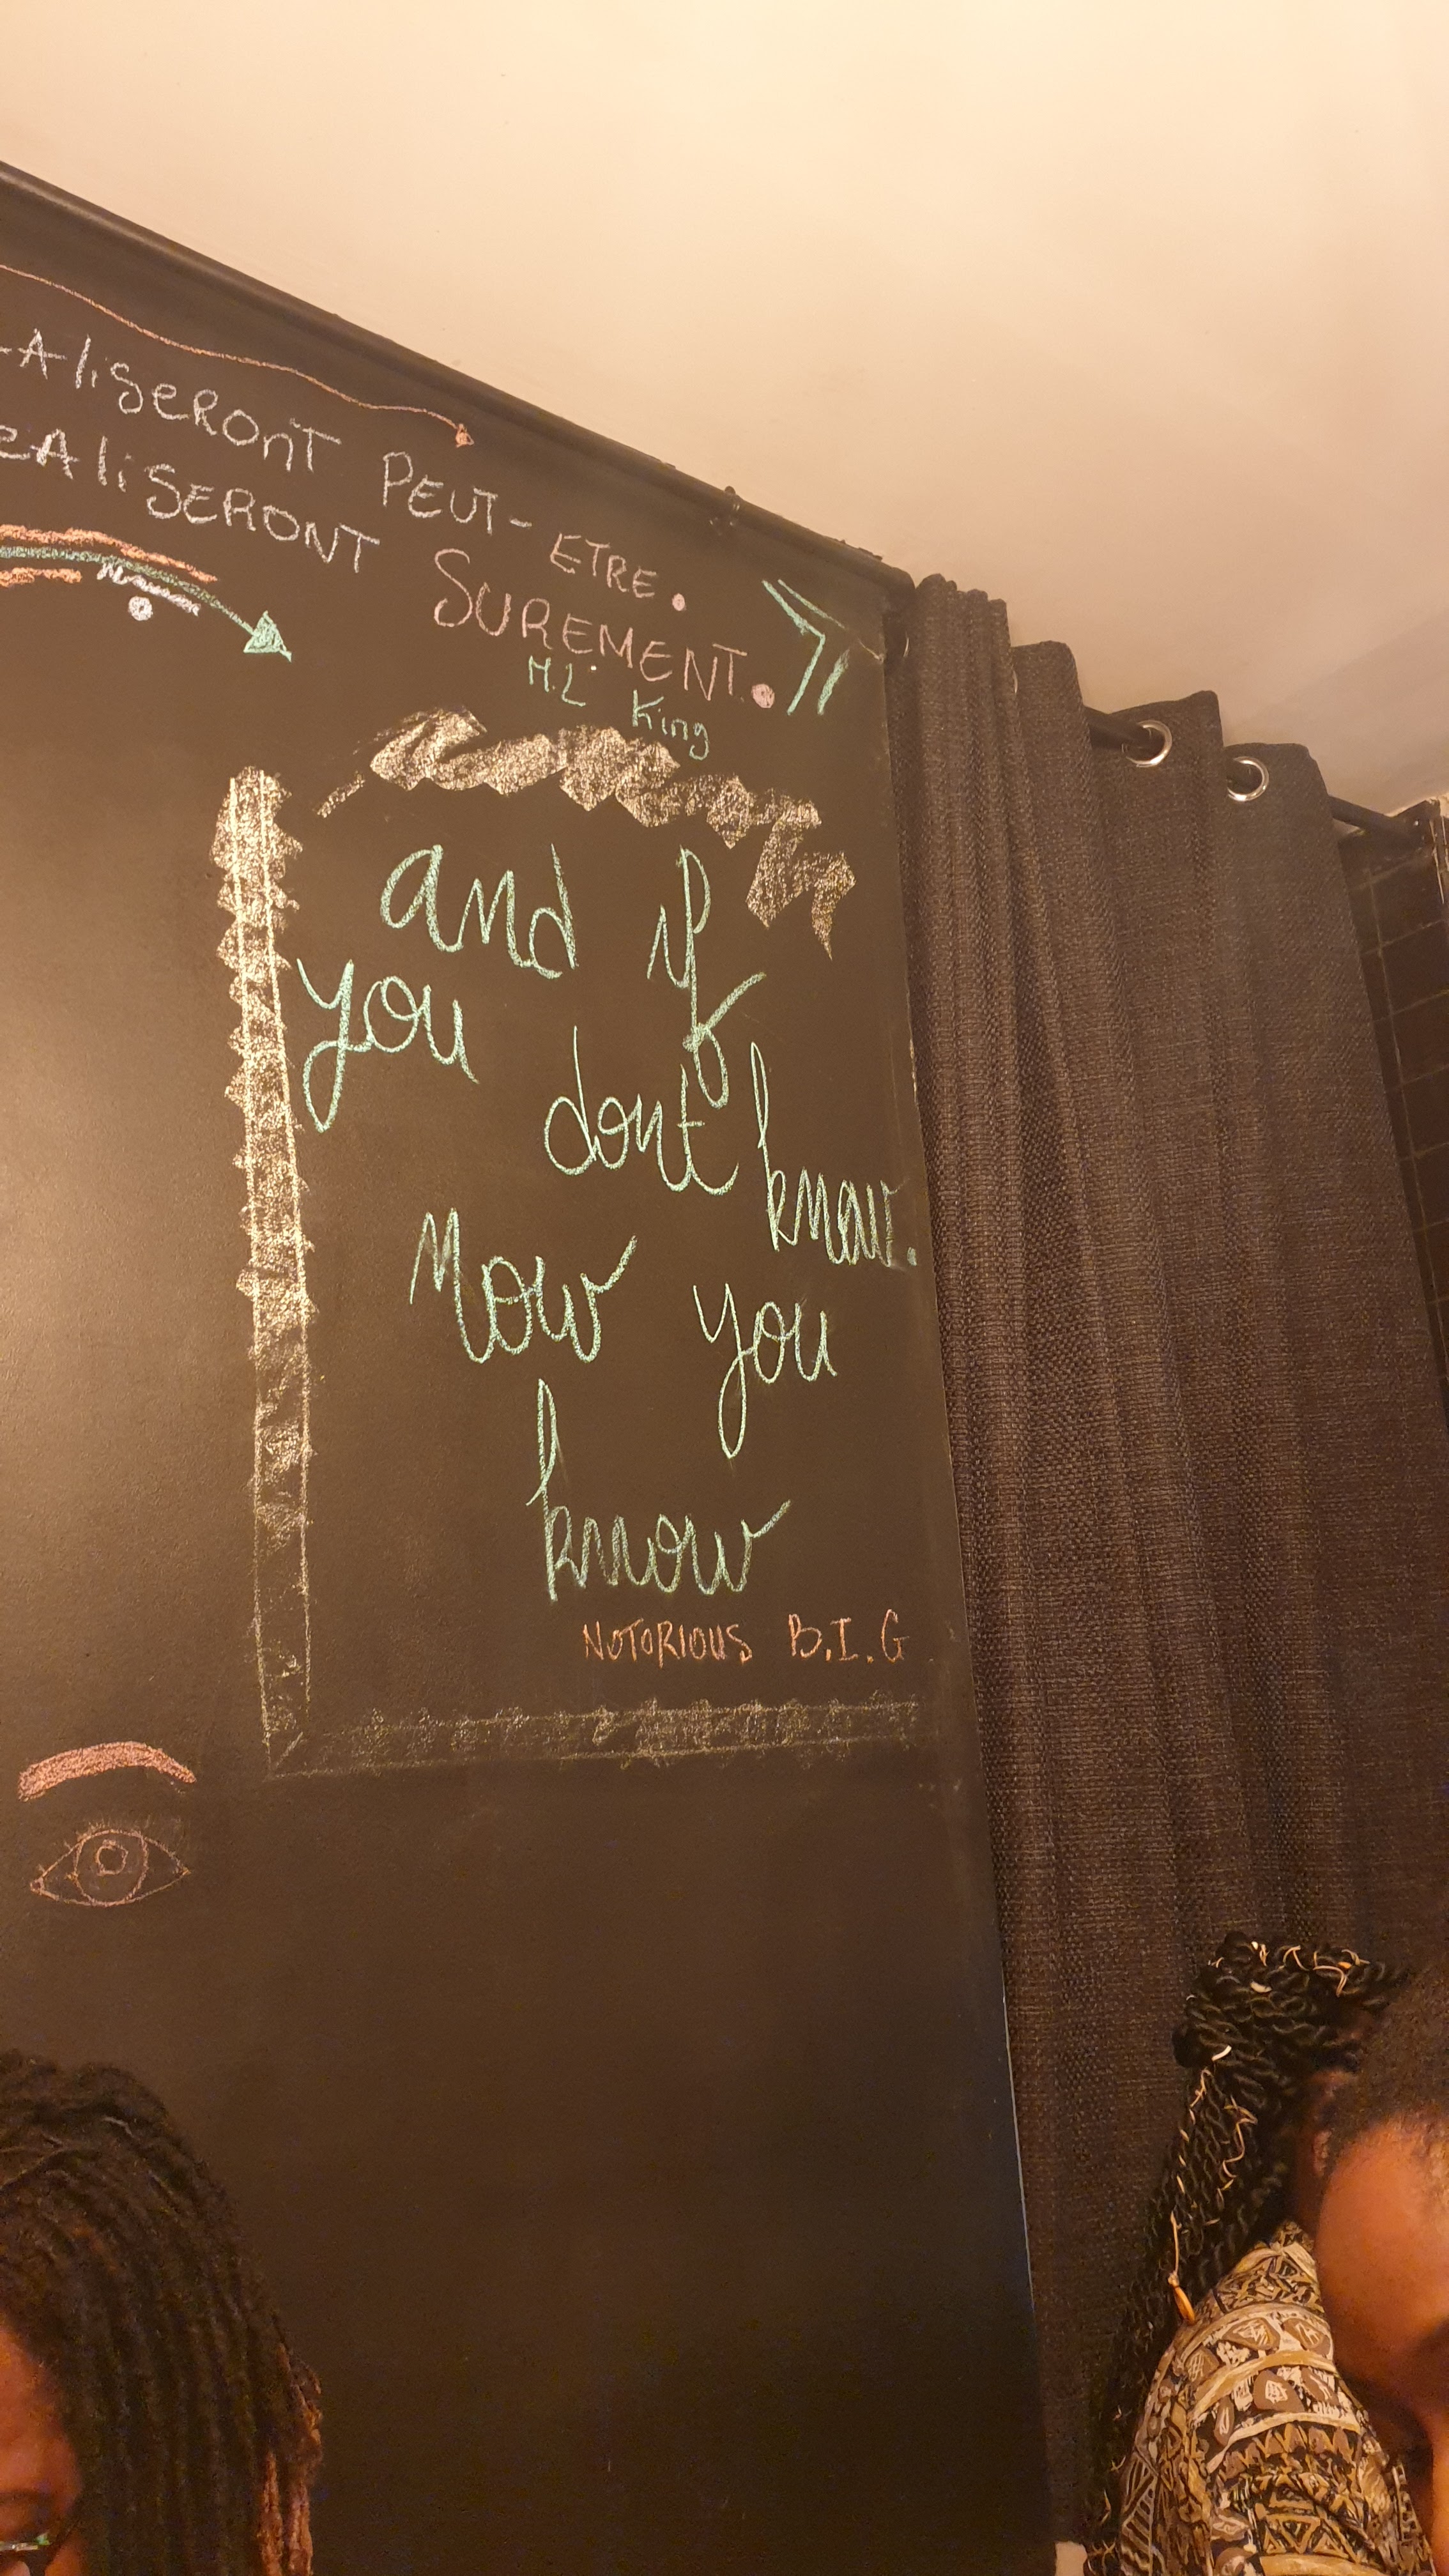 ALISERONT PEUT-ETRE.
eALISERONT SUREMENT.
M.L. King
and if
you
dont know.
Now you
know
NOTORIOUS B.I.G